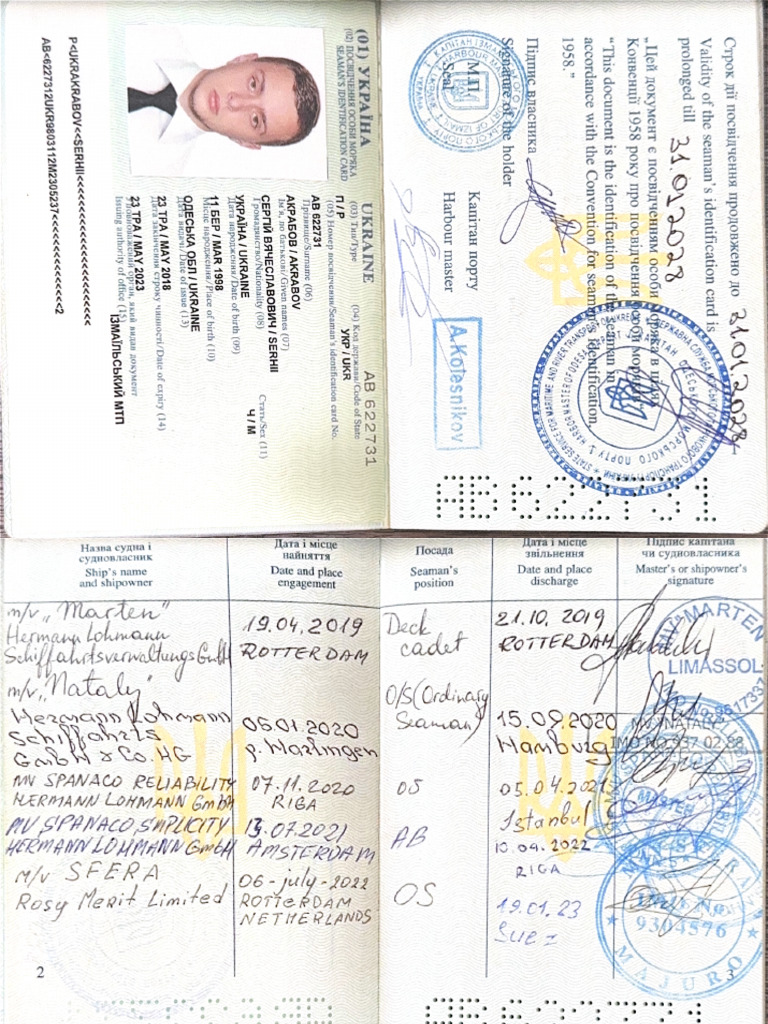 (01) УКРАЇНА
UKRAINE
(02) ПОСВІДЧЕННЯ ОСОБИ МОРЯКА
SEAMAN'S IDENTIFICATION CARD
(03) Тип/Type
(04) Код держави/Code of State
П / P
УКР / UKR
(05) Номер посвідчення/Seaman's identification card No.
AB 622731
АВ 622731
Прізвище/Surname (06)
АКРАБОВ / AKRABOV
Ім'я, по батькові/Given names (07)
СЕРГІЙ ВЯЧЕСЛАВОВИЧ / SERHII
Громадянство/Nationality (08)
УКРАЇНА / UKRAINE
Дата народження/Date of birth (09)
11 БЕР / MAR 1998
Місце народження/Place of birth (10)
Стать/Sex (11)
Ч / M
ОДЕСЬКА ОБЛ / UKRAINE
Дата видачі/Date of issue (13)
23 ТРА / MAY 2018
Дата закінчення строку чинності/Date of expiry (14)
23 ТРА / MAY 2023
Уповноважений орган, який видав документ
Issuing authority of office (15)
ІЗМАЇЛЬСЬКИЙ МТП
P<UKRAKRABOV<<SERHII<<<<<<<<<<<<<<<<<<<<<<
AB<6227312UKR9803112M2305237<<<<<<<<<<<<<<2
Строк дії посвідчення продовжено до 31.01.2028
Validity of the seaman's identification card is
prolonged till 31.01.2028
"Цей документ є посвідченням особи моряка в цілях
Конвенції 1958 року про посвідчення особи моряків
"This document is the identification of the seaman in
accordance with the Convention for seaman's identification,
1958."
Підпис власника
Signature of the holder
МП
Seal
Капітан порту
Harbour master
A.Kolesnikov
АВ622731
Назва судна і
судновласник
Ship's name
and shipowner
Дата і місце
найняття
Date and place
engagement
Посада
Seaman's
position
Дата і місце
звільнення
Date and place
discharge
Підпис капітана
чи судновласника
Master's or shipowner's
signature
m/v „Marten"
Hermann Lohmann
Schiffahrtsverwaltungs GmbH
19.04.2019
ROTTERDAM
Deck
cadet
21.10.2019
ROTTERDAM
MARTEN
LIMASSOL
m/v „Nataly"
Hermann Lohmann
Schiffahrts
GmbH & Co. HG
06.01.2020
p. Harlingen
O/S (Ordinary
Seaman)
15.09.2020
Hamburg
MV NATALY
MV SPANACO RELIABILITY
HERMANN LOHMANN GmbH
07.11.2020
RIGA
OS
05.04.2021
Istanbul
MV SPANACO SIMPLICITY
HERMANN LOHMANN GmbH
13.07.2021
AMSTERDAM
AB
10.04.2022
RIGA
m/v SFERA
Rosy Merit Limited
06-july-2022
ROTTERDAM
NETHERLANDS
OS
19.01.23
Suez
9304576
MAJURO
2
3